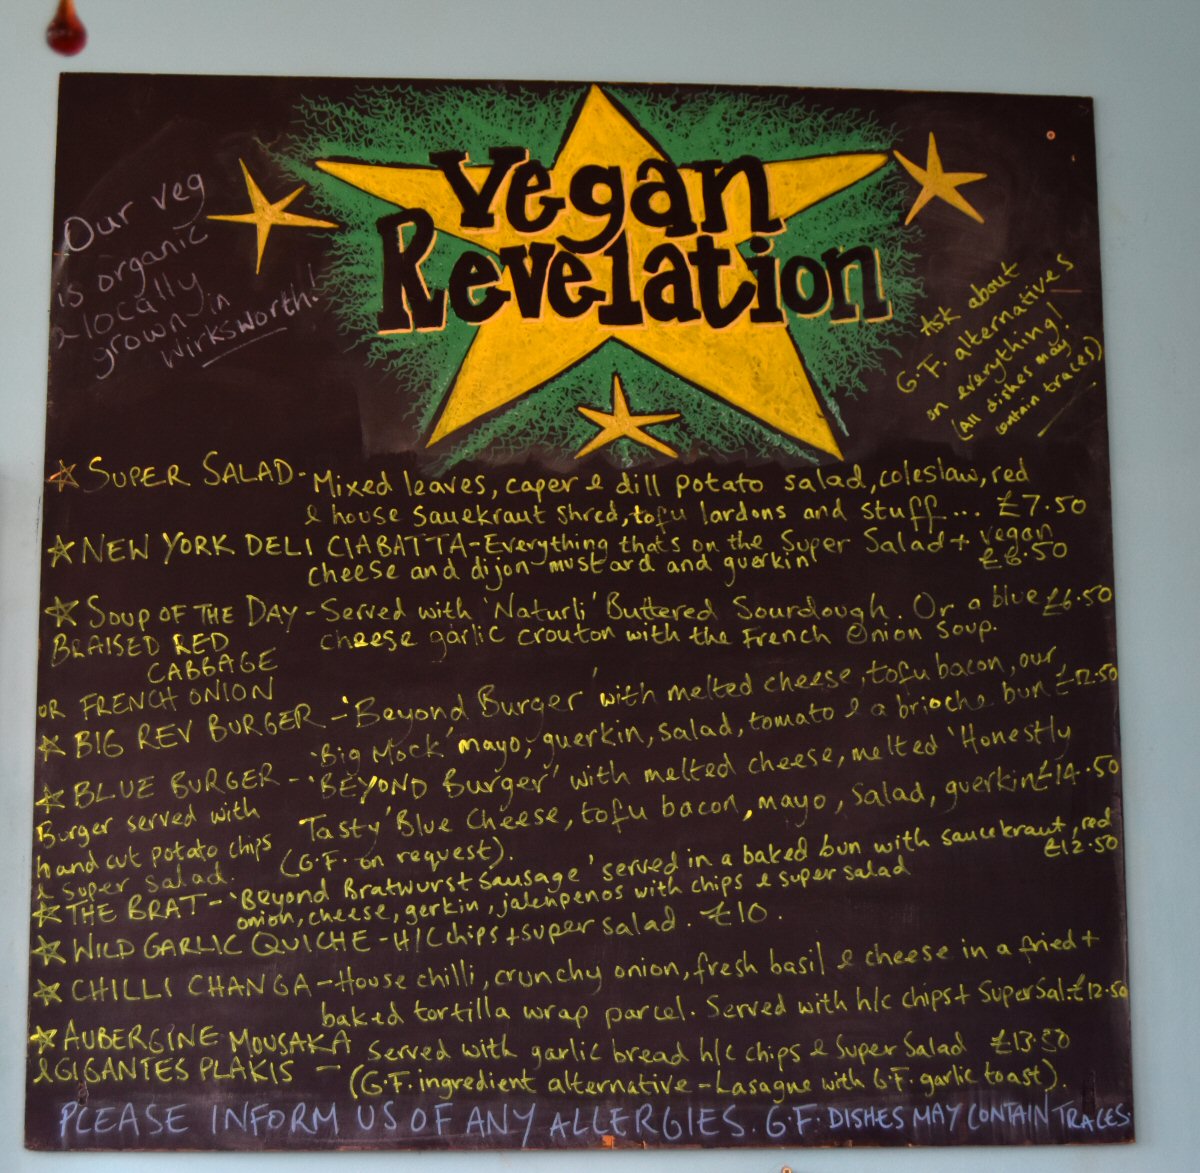 Vegan
Revelation
Our veg
is organic
& locally
grown in
Wirksworth!
Ask about
G.F. alternatives
on everything!
(All dishes may
contain traces)
SUPER SALAD - Mixed leaves, caper & dill potato salad, coleslaw, red
& house sauekraut shred, tofu lardons and stuff... £7.50
NEW YORK DELI CIABATTA - Everything that's on the Super Salad + vegan
cheese and dijon mustard and guerkin £6.50
SOUP OF THE DAY - Served with 'Naturli' Buttered Sourdough. Or a blue £6.50
BRAISED RED cheese garlic crouton with the French Onion Soup.
CABBAGE
OR FRENCH ONION
BIG REV BURGER - 'Beyond Burger' with melted cheese, tofu bacon, our £12.50
'Big Mock' mayo, guerkin, salad, tomato & a brioche bun
BLUE BURGER - 'BEYOND Burger' with melted cheese, melted 'Honestly
Burger served with Tasty' Blue Cheese, tofu bacon, mayo, salad, guerkin £14.50
hand cut potato chips (G.F. on request).
& super salad.
THE BRAT - 'Beyond Bratwurst Sausage' served in a baked bun with sauekraut, red
onion, cheese, gerkin, jalenpenos with chips & super salad £12.50
WILD GARLIC QUICHE - H/C chips + super salad. £10.
CHILLI CHANGA - House chilli, crunchy onion, fresh basil & cheese in a fried +
baked tortilla wrap parcel. Served with h/c chips + SuperSal. £12.50
AUBERGINE MOUSAKA
& GIGANTES PLAKIS - Served with garlic bread h/c chips & Super Salad
(G.F. ingredient alternative - Lasagne with G.F. garlic toast).
PLEASE INFORM US OF ANY ALLERGIES. G.F. DISHES MAY CONTAIN TRACES.